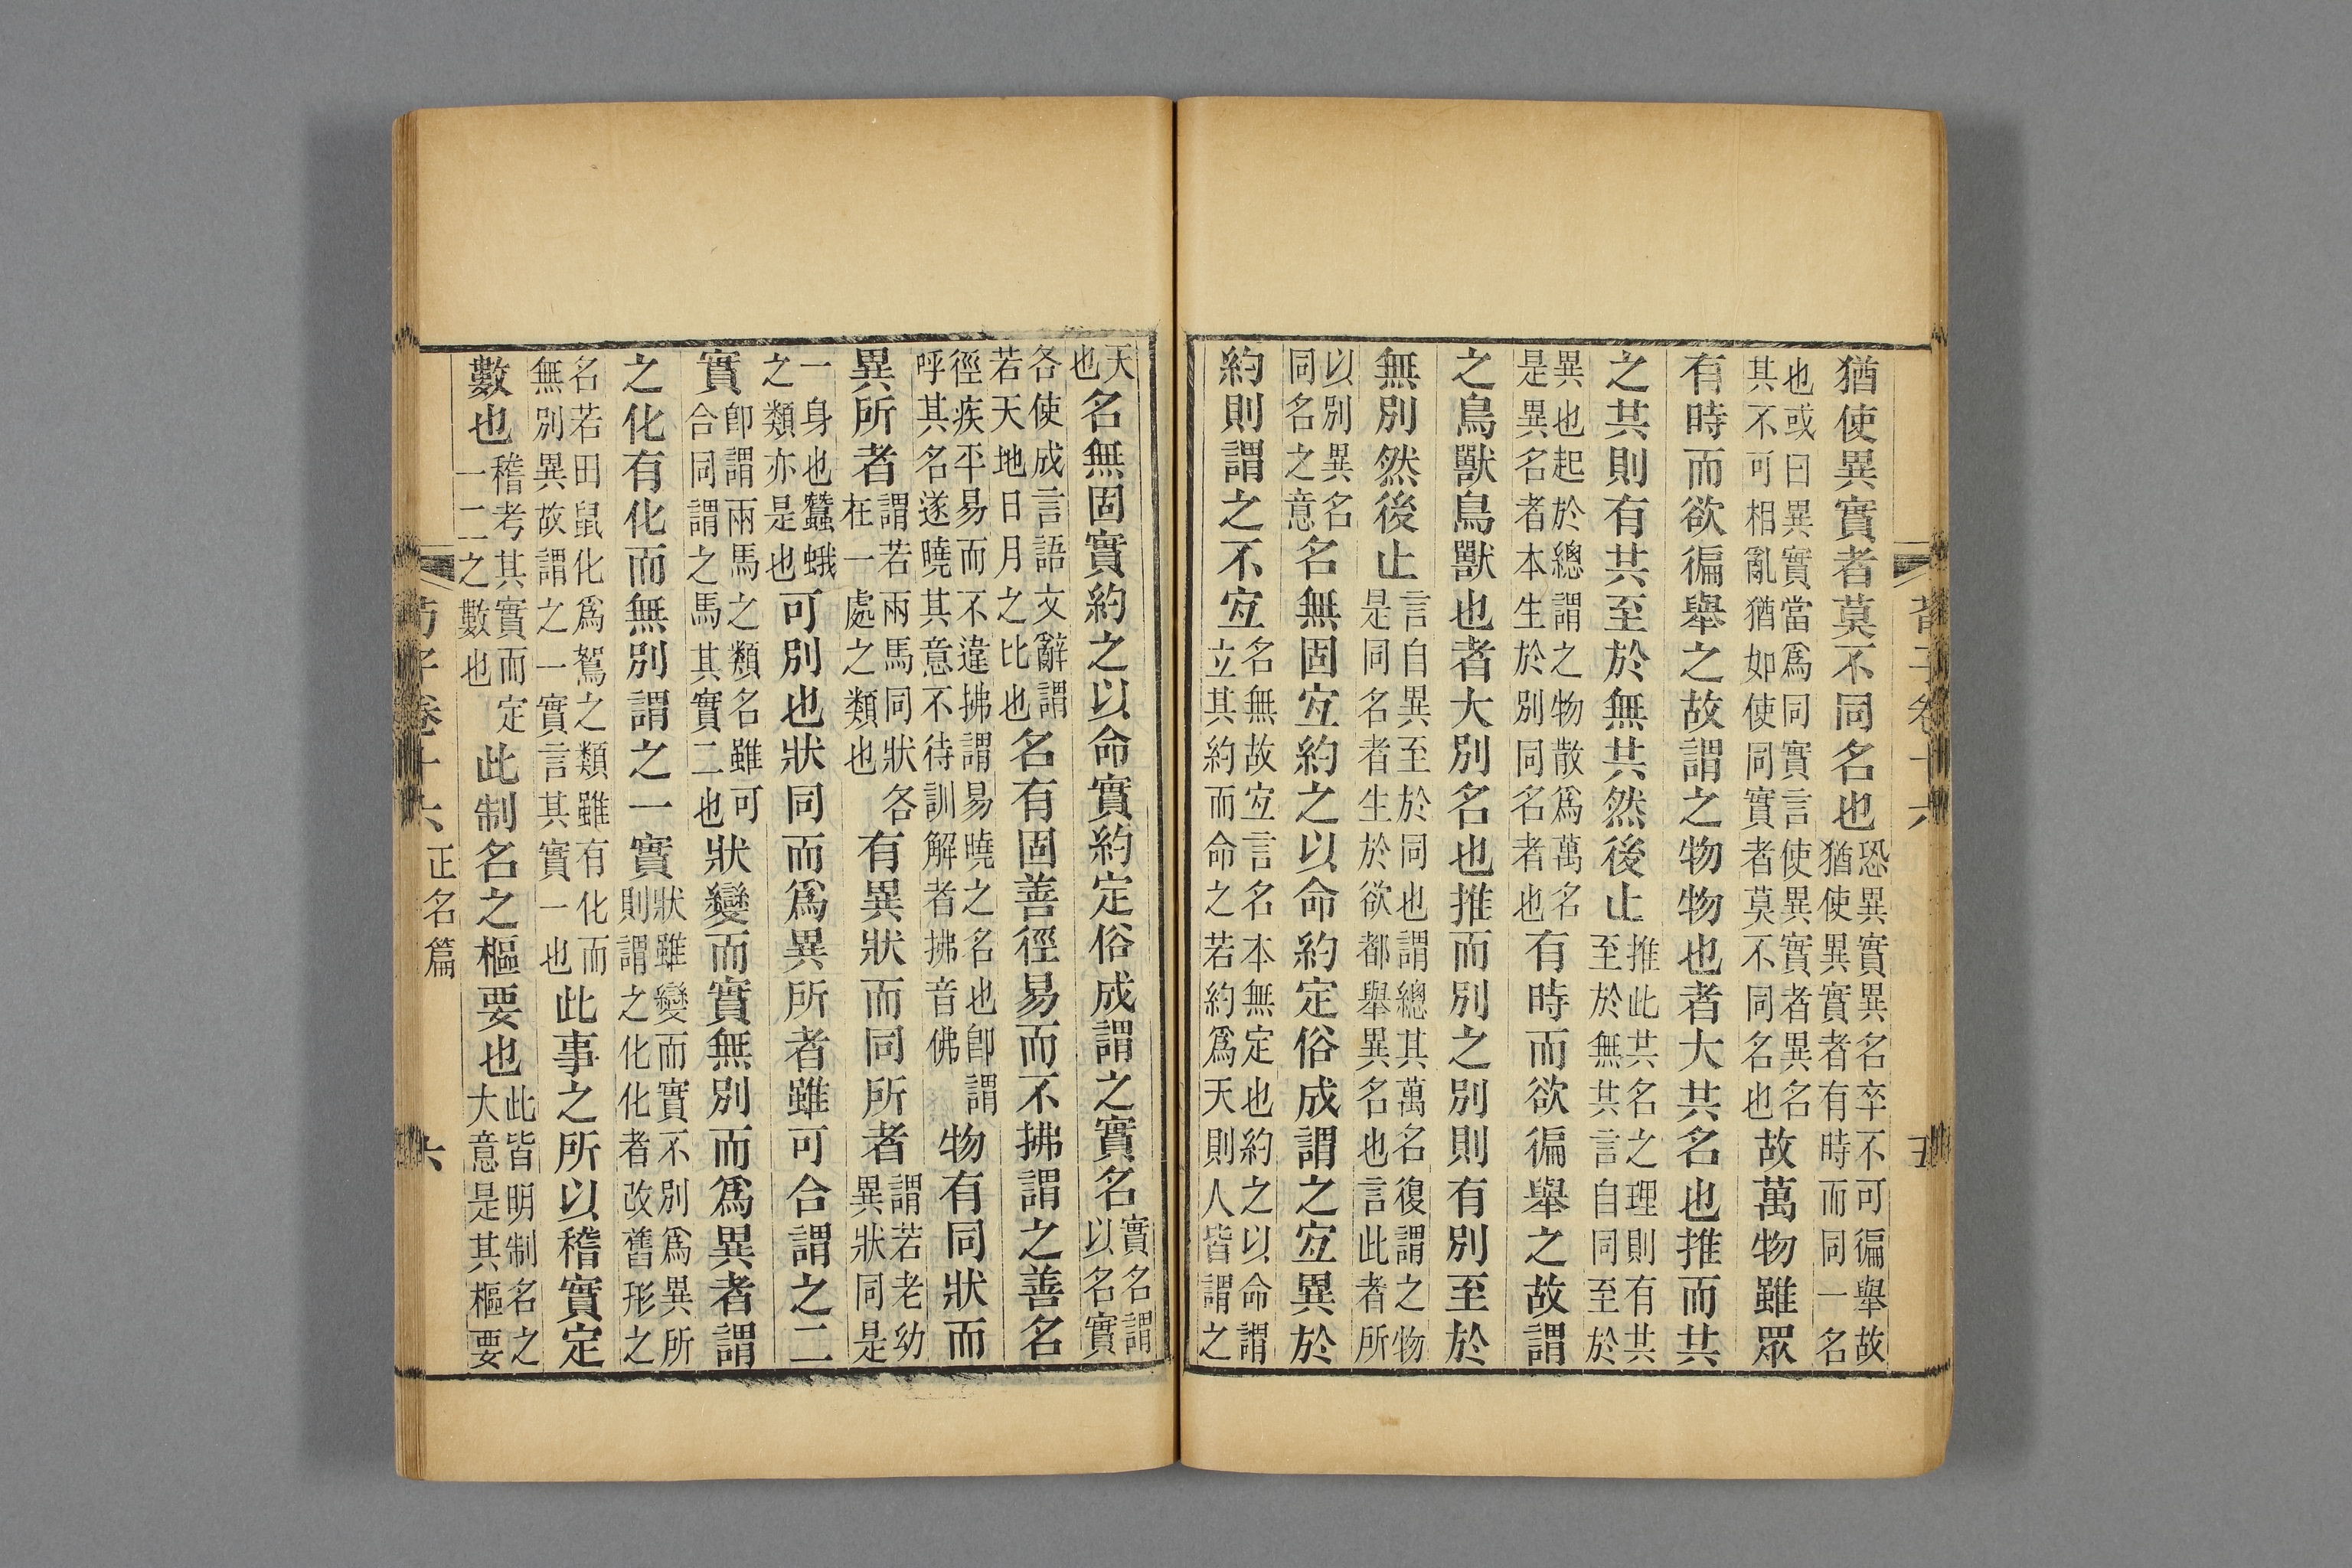 猶使異實者莫不同名也恐異實異名卒不可徧舉故猶使異實者有時而同一名
也或曰異實當爲同實言使異實者異名其不可相亂猶如使同實者莫不同名也故萬物雖眾
有時而欲徧舉之故謂之物物也者大共名也推而共
之共則有共至於無共然後止推此共名之理則有共至於無共言自同至於
異也起於總謂之物散爲萬名是異名者本生於別同名者也有時而欲徧舉之故謂
之鳥獸鳥獸也者大別名也推而別之別則有別至於
無別然後止言自異至於同也謂總其萬名復謂之物是同名者生於欲都舉異名也言此者所
以別異名同名之意名無固宐約之以命約定俗成謂之宐異於
約則謂之不宐名無故宐言名本無定也約之以命謂立其約而命之若約爲天則人皆謂之
天也名無固實約之以命實約定俗成謂之實名實名謂以名實
各使成言語文辭謂若天地日月之比也名有固善徑易而不拂謂之善名
徑疾平易而不違拂謂易曉之名也卽謂呼其名遂曉其意不待訓解者拂音佛物有同狀而
異所者謂若兩馬同狀各在一處之類也有異狀而同所者謂若老幼異狀同是
一身也蠶蛾之類亦是也可別也狀同而爲異所者雖可合謂之二
實卽謂兩馬之類名雖可合同謂之馬其實二也狀變而實無別而爲異者謂
之化有化而無別謂之一實狀雖變而實不別爲異所則謂之化化者改舊形之
名若田鼠化爲鴽之類雖有化而無別異故謂之一實言其實一也此事之所以稽實定
數也稽考其實而定一二之數也此制名之樞要也此皆明制名之大意是其樞要
荀子卷十六正名篇 六